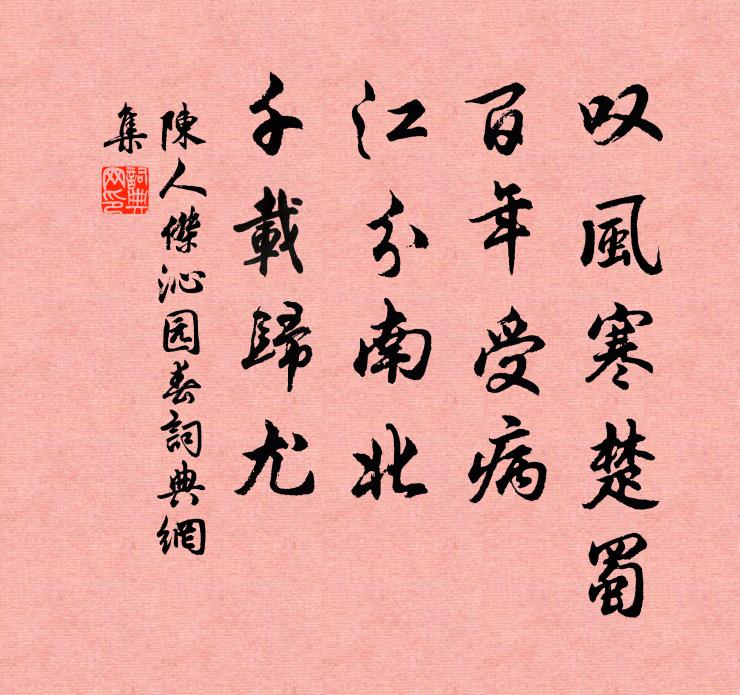 叹風寒楚蜀
百年受病
江分南北
千載歸尤
陳人傑沁园春詞典網
集
詞典
网印